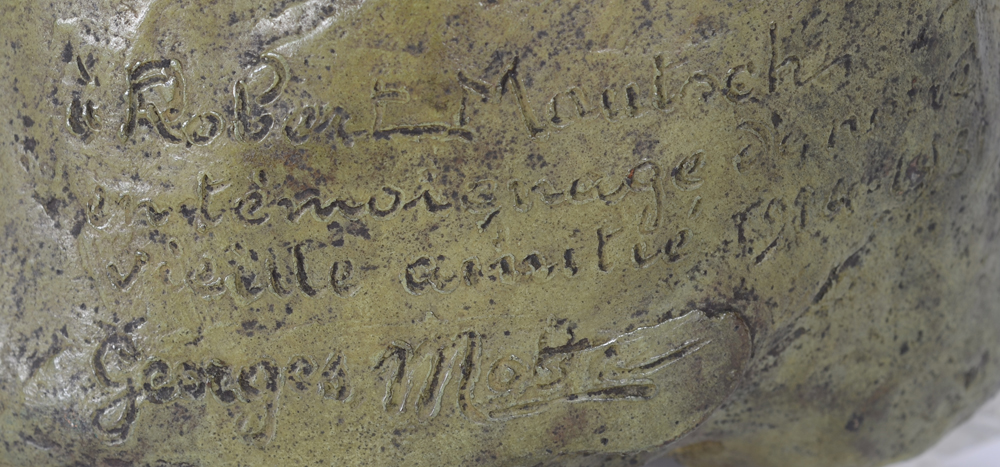 à RoBerT Mautsch
en témoignage d'une
vieille amitié
Georges